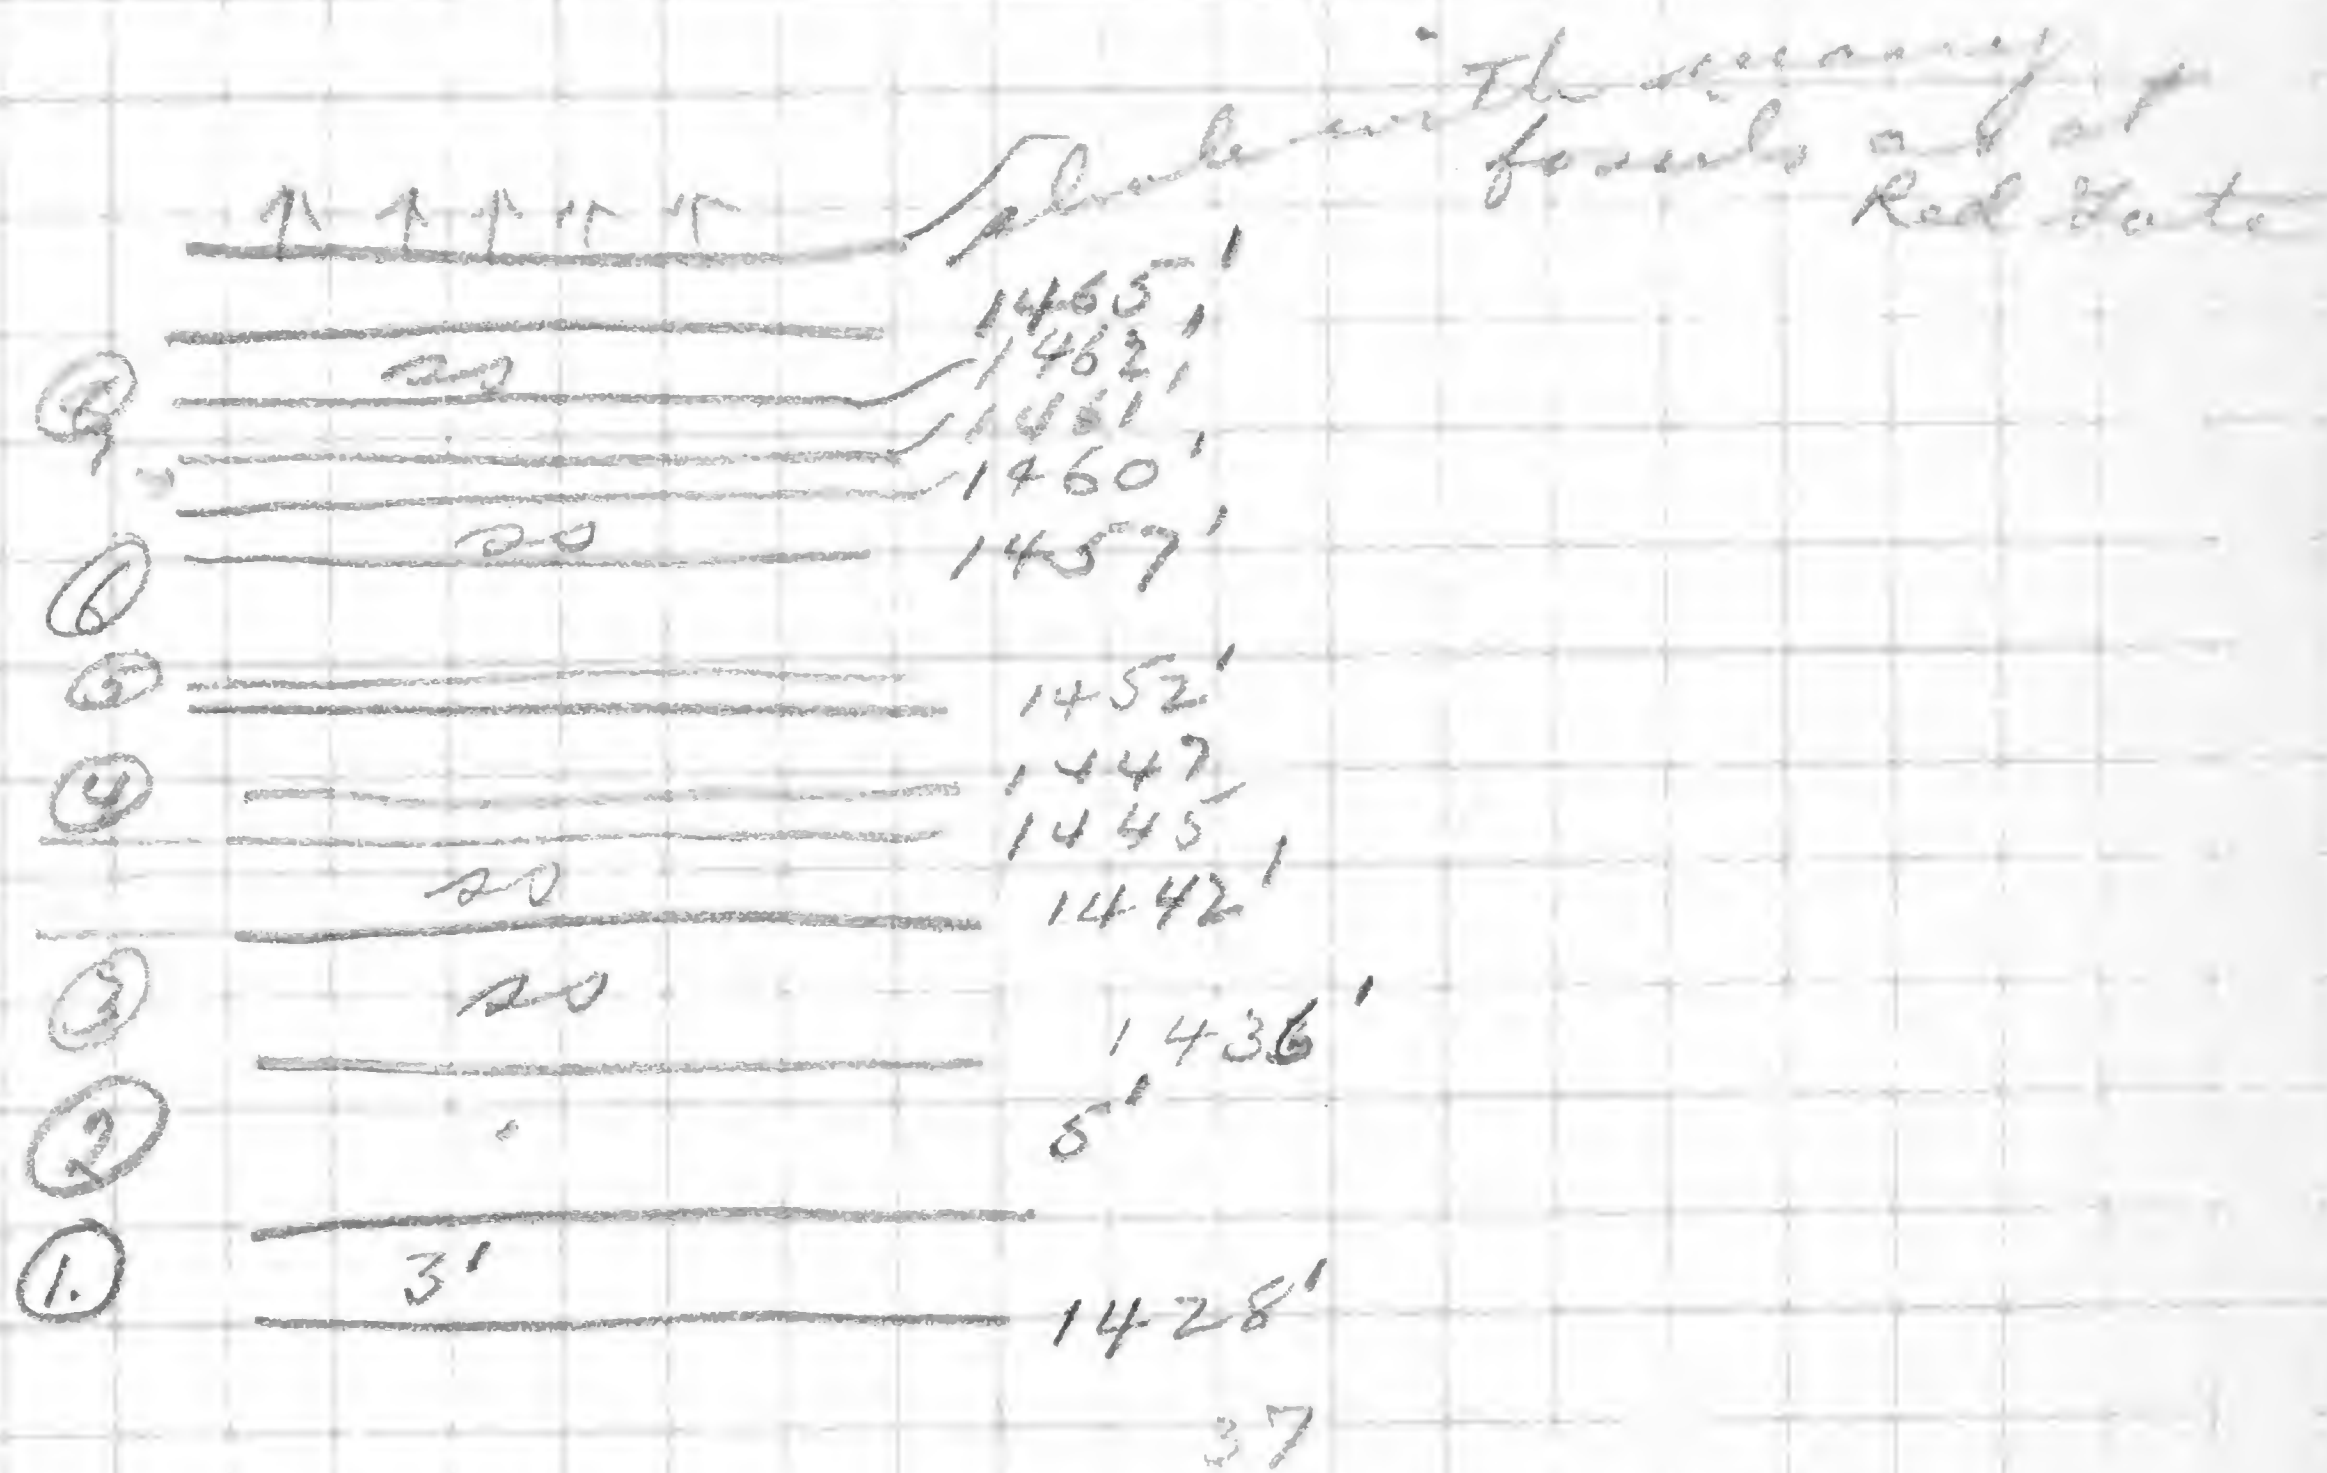 with many
fossils as at
Red Gate
1465'
1462'
1461'
1460'
1457'
6
5
1452'
4
1447
1445
1442'
3
1436'
2
5'
1.
3'
1428'
37